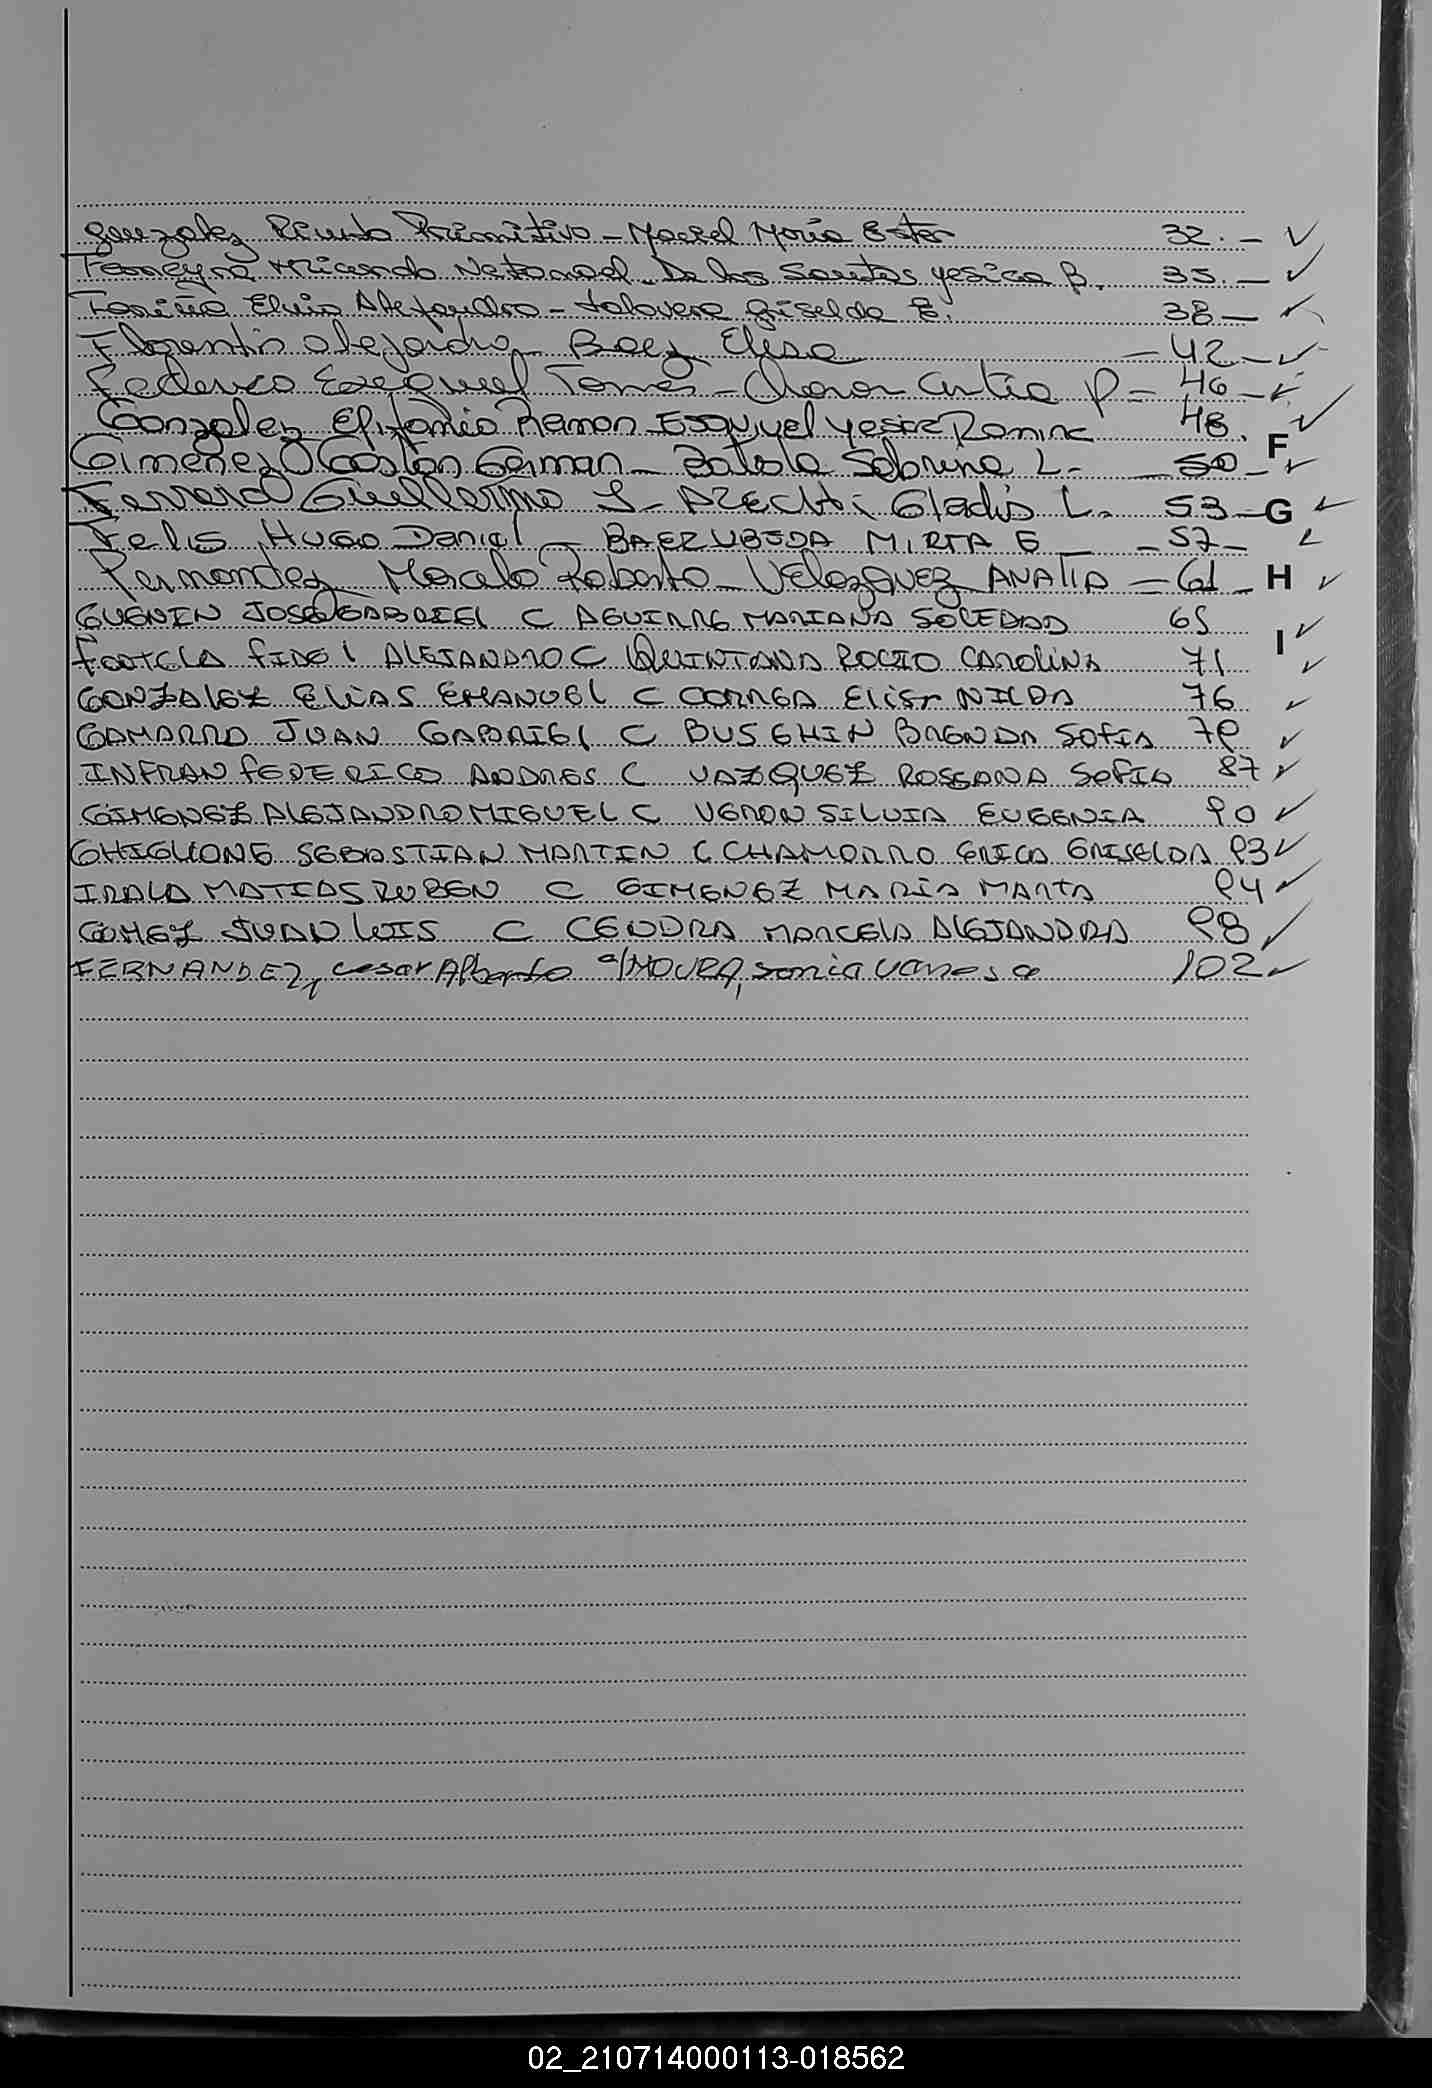 Gonzalez Primitivo - Maciel María Ester 32. - ✓
Ferreyra Ricardo Natanael - De los Santos Yesica B. 35. - ✓
Fariña Elvio Alejandro - Talavera Giselda E. 38 - ✓
Florentin Alejandro - Baez Elisa - 42 - ✓
Federico Ezequiel Torres - Charon Cintia P = 46 - ✓
Gonzalez Epifanio Ramon - Esquivel Yesica Romina 48. ✓
F
Gimenez Gaston German - Batista Sabrina L. - 50 - ✓
Ferrera Guillermo S - Azechi Gladis L. 53 - ✓
G
Felis Hugo Daniel - BAEZ UBEDA MIRTA E - - 57 - ✓
Fernandez Marcelo Roberto - VELAZQUEZ ANALIA = 61 - ✓
H
GUENIN JOSE GABRIEL C AGUIRRE MARIANA SOLEDAD 65 ✓
I
FIDEL ALEJANDRO C QUINTANA ROCIO CAROLINA 71 ✓
GONZALEZ ELIAS EMANUEL C CORREA NILDA 76 ✓
GAMARRA JUAN GABRIEL C BUSGHIN BRENDA SOFIA 79 ✓
INFRAN FEDERICO ANDRES C VAZQUEZ ROSSANA SOFIA 87 ✓
GIMENEZ ALEJANDRO MIGUEL C VERON SILVIA EUGENIA 90 ✓
GHIGLIONE SEBASTIAN MARTIN C CHAMORRO ERICA GRISELDA 93 ✓
IRALA MATIAS RUBEN C GIMENEZ MARIA MARTA 94 ✓
GOMEZ JUAN LUIS C CENDRA MARCELA ALEJANDRA 98 ✓
FERNANDEZ, cesar Alberto c/ MOURA, sonia vanesa 102 ✓
02_210714000113-018562